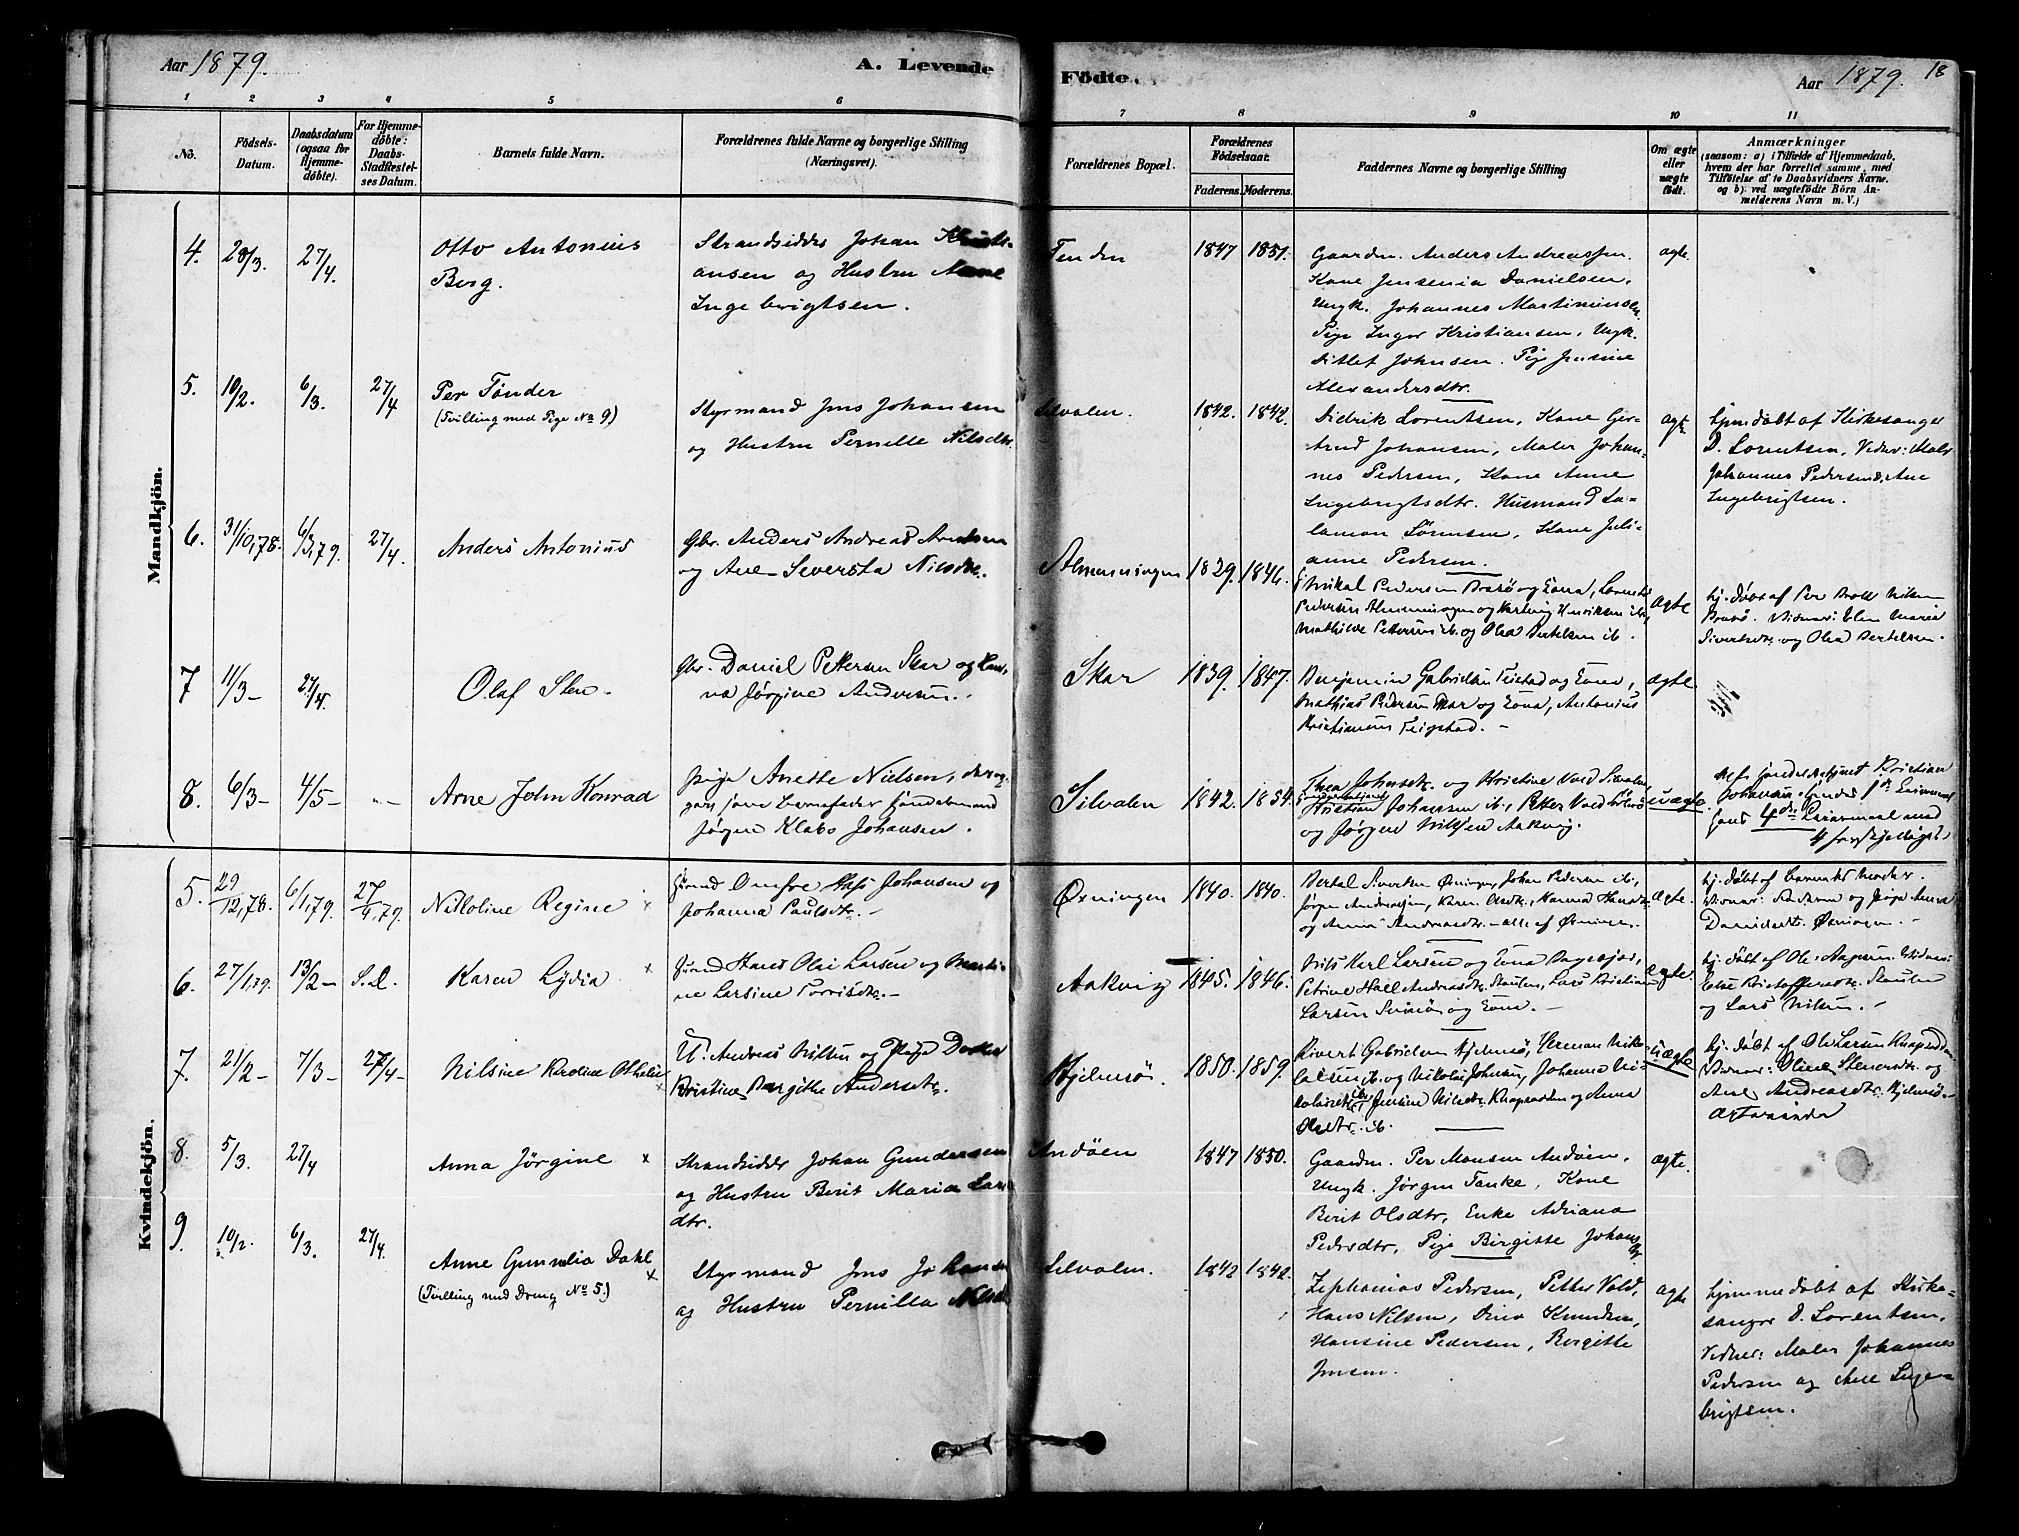 Aar 1879.
A. Levende
Födte.
Aar 1879.
18
1 2 3 4 5 6 7 8 9 10 11
No.
Födsels-
Datum.
Daabsdatum
(ogsaa for
Hjemme-
døbte).
For Hjemme-
døbte:
Daabs-
Stadfæstel-
ses Datum.
Barnets fulde Navn.
Forældrenes fulde Navne og borgerlige Stilling
(Næringsvei).
Forældrenes Bopæl.
Forældrenes
Födselsaar.
Faderens. Moderens.
Faddernes Navne og borgerlige Stilling
Om ægte
eller
uægte
födt.
Anmærkninger
(saasom: a) i Tilfælde af Hjemmedaab,
hvem der har forrettet samme, med
Tilföielse af to Daabsvidners Navne,
og b) ved uægtefödte Börn An-
melderens Navn m. V.)
Mandkjön.
4. 28/3. 27/4.
Otto Antonius
Borg.
Strandsidder Johan Kristi-
ansen og Hustru Anne
Ingebrigtsen.
1847 1851.
Gaardm. Anders Andreassen.
Kone Jensenia Danielsen.
Ungk. Johannes Martinussen.
Pige Inger Kristiansen, Ungk.
Ditlef Johnsen. Pige Jensine
Alexandersdtr.
ægte.
5. 10/2. 6/3. 27/4
Per Tønder
(Tvilling med Pige No 9)
Styrmand Jens Johansen
og Hustru Pernille Nilsdtr.
Silvalen.
1842. 1842.
Didrik Lorentsen, Kone Ger-
trud Johansen, Maler Johan-
nes Pedersen, Kone Anne
Ingebrigtsdtr. Husmand Sa-
lamon Sörensen, Kone Juli-
anne Pedersen.
ægte
hjemdøbt af Kirkesanger
D. Lorentsen, Vidner: Maler
Johannes Pedersen & Ane
Ingebrigtsen.
6. 31/10,78. 6/3,79. 27/4.
Anders Antonius
Gbr. Anders Andreas
og Ane Sevrista Nilsdtr.
Almenningen
1839. 1846.
Mikal Pedersen Brasø og Kona,
Pedersen Almenningen og Hartvig Henriksen ib.,
Mathilde Pettersen ib. og Olea Bertelsen ib.
ægte
hj. døbt af Per
Brasø. Vidner: Elen Maria
Sivertsdtr. og Olea Bertelsen.
7 11/3- 27/4.
Olaf Sten-
Gbr. Daniel Pettersen Skar og Kon-
na Jørgine Andersen.-
Skar
1839. 1847.
Benjamin Gabrielsen Feistad og Kona,
Mathias Pedersen Skar og Kona, Antonius
Kristiansen Feigstad.-
ægte
8. 6/3- 4/5- -"-
Arne John Konrad
pige Anette Nielsen, der op-
gav som Barnefader Handelsmand
Jørgen Klabo Johansen.
Silvalen
1842. 1854.
Thea Johnsdtr. og Kristine Vold Silvalen
Kristian Johansen ib., Petter Vold
og Jørgen Nilsen Aakvig.
uægte.
Kristian
Johansen. Hendes 1ste Leiermaal
hans 4de Leiermaal med
4 forskjellige
Kvindekjön.
5. 29/12,78. 6/1,79. 27/4,79.
Nikoline Regine ×
Johansen og
Johanna Paulsdtr.-
Øxningen
1840. 1840.
Bertal Sivertsen Øxningen, Johan Pedersen ib.,
Jørgen Andreassen, Karen Olsdtr., Hanna
og Anna Andreasdtr.- alle af Øxningen.
ægte.
hj. døbt af Barnets Moder.
Vidner: Faderen og Pige Anna
Danielsdtr. Øxningen.-
6. 27/1,79. 13/2- S.D.
Karen Lydia ×
Hans Olai Larsen og Marti-
ne Larsine
Aakvig
1845. 1846.
Nils Karl Larsen og Kona
Petrine Hall Andreasdtr. Stavlen, Lars Kristian
Larsen og Kona.-
ægte
hj. døbt af Ole Vidner:
Else Kristoffersdtr. Stavlen
og Lars Nilsen.-
7. 21/2- 7/3- 27/4-
Nilsine Karoline Othelie ×
U. Andreas Nilsen og Pige
Kristine Birgithe Andersdtr.
Hjelmsø.
1850. 1859.
Sivert Gabrielsen Hjelmsø, Herman Niko-
laisen ib. og Nikolai Johnsen, Johanna Ni-
kolaisdtr. ib., Jensine Nilsdtr. og Anna
Olsdtr. ib.
Uægte
hj. døbt af Ole Larsen
Vidner: Oline Stenersdtr. og
Ane Andreasdtr. Hjelmsø.-
8. 5/3. 27/4
Anna Jörgine ×
Strandsidder Johan Gundersen
og Hustru Berit Maria Lars
dtr.
Andöen
1847 1850.
Gaardm. Per Monsen Andöen.
Ungk. Jörgen Tanke, Kone
Berit Olsdtr, Enke Adriana
Pedersdtr, Pige Birgitte Johans
ægte.
9. 10/2. 6/3. 27/4.
Anne Gunnelia Dahl ×
(Tvilling med Dreng No 5.)
Styrmand Jens Johansen
og Hustru Pernilla Nilsd
Silvalen.
1842 1842.
Zephanias Pedersen, Petter Vold,
Hans Nilsen, Dina Knudsen,
Hansine Pedersen, Birgitte
Jensen.
ægte
hjemmedøbt af Kirke-
sanger D. Lorentsen.
Vidner: Maler Johannes
Pedersen og Ane Inge-
brigtsen.